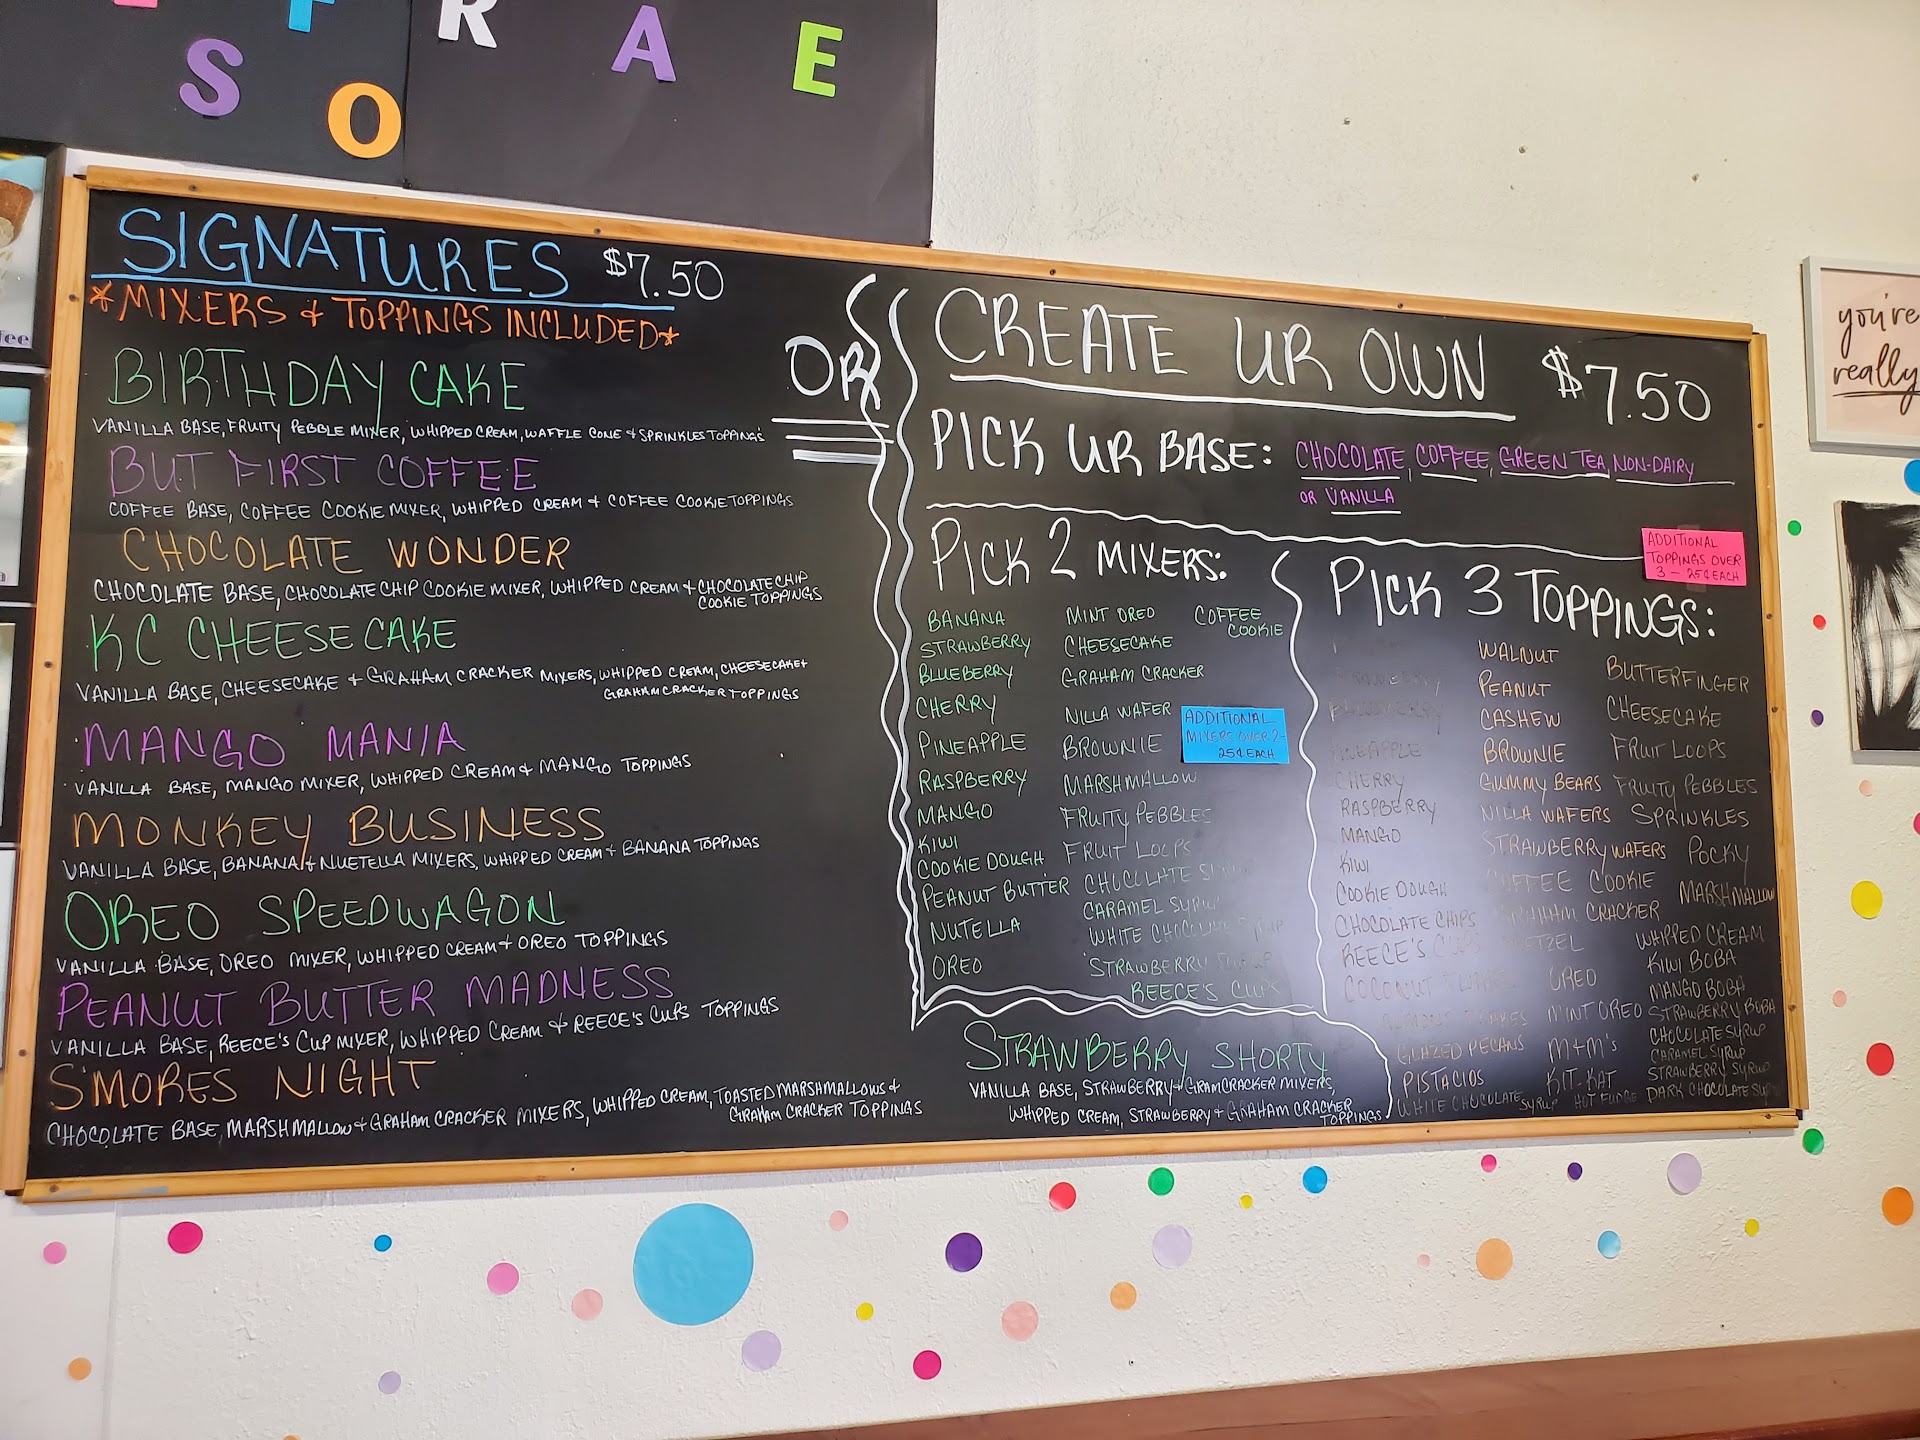 F R A E
S O
SIGNATURES $7.50
*MIXERS & TOPPINGS INCLUDED*
BIRTHDAY CAKE
VANILLA BASE, FRUITY PEBBLE MIXER, WHIPPED CREAM, WAFFLE CONE & SPRINKLES TOPPINGS
BUT FIRST COFFEE
COFFEE BASE, COFFEE COOKIE MIXER, WHIPPED CREAM & COFFEE COOKIE TOPPINGS
CHOCOLATE WONDER
CHOCOLATE BASE, CHOCOLATE CHIP COOKIE MIXER, WHIPPED CREAM & CHOCOLATE CHIP
COOKIE TOPPINGS
KC CHEESECAKE
VANILLA BASE, CHEESECAKE & GRAHAM CRACKER MIXERS, WHIPPED CREAM, CHEESECAKE &
GRAHAM CRACKER TOPPINGS
MANGO MANIA
VANILLA BASE, MANGO MIXER, WHIPPED CREAM & MANGO TOPPINGS
MONKEY BUSINESS
VANILLA BASE, BANANA & NUETELLA MIXERS, WHIPPED CREAM & BANANA TOPPINGS
OREO SPEEDWAGON
VANILLA BASE, OREO MIXER, WHIPPED CREAM & OREO TOPPINGS
PEANUT BUTTER MADNESS
VANILLA BASE, REECE'S CUP MIXER, WHIPPED CREAM & REECE'S CUPS TOPPINGS
S'MORES NIGHT
CHOCOLATE BASE, MARSHMALLOW & GRAHAM CRACKER MIXERS, WHIPPED CREAM, TOASTED MARSHMALLOWS &
GRAHAM CRACKER TOPPINGS
OR
CREATE UR OWN $7.50
PICK UR BASE: CHOCOLATE, COFFEE, GREEN TEA, NON-DAIRY
OR VANILLA
PICK 2 MIXERS:
BANANA
STRAWBERRY
BLUEBERRY
CHERRY
PINEAPPLE
RASPBERRY
MANGO
KIWI
COOKIE DOUGH
PEANUT BUTTER
NUTELLA
OREO
MINT OREO
CHEESECAKE
GRAHAM CRACKER
NILLA WAFER
BROWNIE
MARSHMALLOW
FRUITY PEBBLES
FRUIT LOOPS
CHOCOLATE
CARAMEL SYRUP
WHITE CHOCOLATE SYRUP
STRAWBERRY
REECE'S CUPS
COFFEE
COOKIE
ADDITIONAL
MIXERS OVER 2-
25¢ EACH
PICK 3 TOPPINGS:
ADDITIONAL
TOPPINGS OVER
3 - 25¢ EACH
PINEAPPLE
CHERRY
RASPBERRY
MANGO
KIWI
COOKIE DOUGH
CHOCOLATE CHIPS
REECE'S CUPS
COCONUT
GLAZED PECANS
PISTACIOS
WHITE CHOCOLATE SYRUP
WALNUT
PEANUT
CASHEW
BROWNIE
GUMMY BEARS
NILLA WAFERS
STRAWBERRY WAFERS
COFFEE COOKIE
GRAHAM CRACKER
PRETZEL
OREO
MINT OREO
M&M'S
KIT-KAT
HOT FUDGE
BUTTERFINGER
CHEESECAKE
FRUIT LOOPS
FRUITY PEBBLES
SPRINKLES
POCKY
MARSHMALLOW
WHIPPED CREAM
KIWI BOBA
MANGO BOBA
STRAWBERRY BOBA
CHOCOLATE SYRUP
CARAMEL SYRUP
STRAWBERRY SYRUP
DARK CHOCOLATE
STRAWBERRY SHORTY
VANILLA BASE, STRAWBERRY & GRAMCRACKER MIXERS,
WHIPPED CREAM, STRAWBERRY & GRAHAM CRACKER
TOPPINGS
you're
really